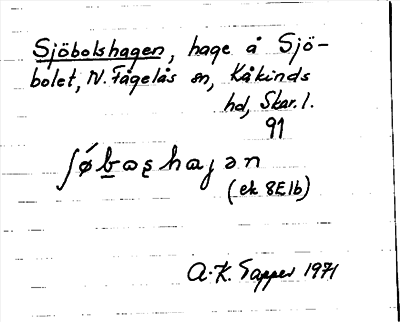 Sjöbolshagen, hage å Sjö-
bolet, N. Fågelås sn, Kåkinds
hd, Skar. l.
91
(ek 8E1b)
A.K. Tapper 1971